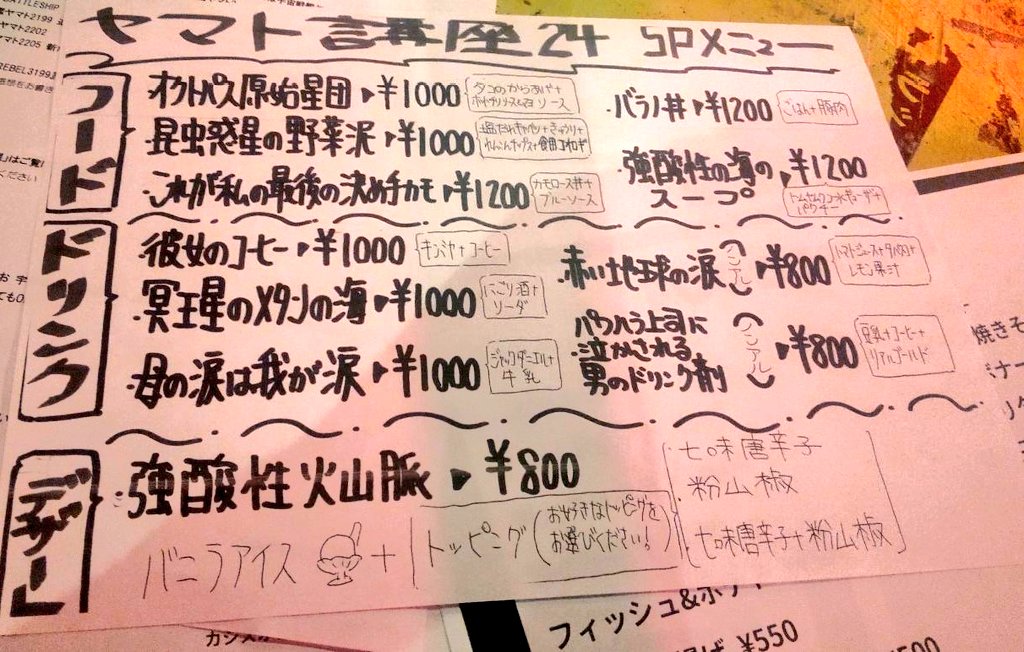 ATTLESHIP
ヤマト2199
ヤマト2202
ヤマト2205
REBEL3199
ヤマト講座24 SPメニュー
フード
・オクトパス原始星団▶¥1000
タコのからあげ+
ソース
・昆虫惑星の野菜泥▶¥1000
塩だれキャベツ+きゅうり+
・これが私の最後の決め手カモ▶¥1200
カモロース丼+
ブルーソース
・バラノ丼▶¥1200
ごはん+豚肉
・強酸性の海の
スープ
▶¥1200
パクチー
ドリンク
・彼女のコーヒー▶¥1000
キンミヤ+コーヒー
・冥王星のメタンの海▶¥1000
にごり酒+
ソーダ
・母の涙は我が涙▶¥1000
ジャックダニエル+
牛乳
・赤い地球の涙(ノンアル)▶¥800
トマトジュース+タバスコ+
レモン果汁
・パワハラ上司に
泣かされる
男のドリンク剤
(ノンアル)
▶¥800
豆乳+コーヒー+
リアルゴールド
デザート
・強酸性火山脈▶¥800
バニラアイス + トッピング(お好きなトッピングを
お選びください!)
・七味唐辛子
・粉山椒
・七味唐辛子+粉山椒
焼きそ
フィッシュ&ポテ
¥550